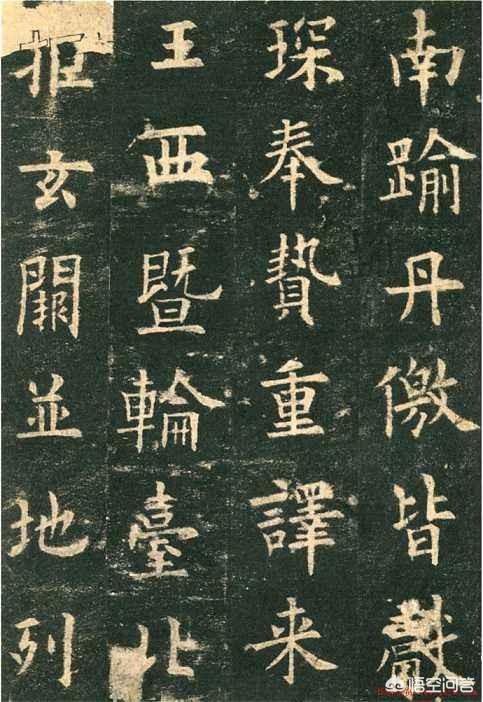 南踰丹儌皆獻
琛奉贄重譯来
王西曁輪臺北
拒玄闕並地列
悟空问答